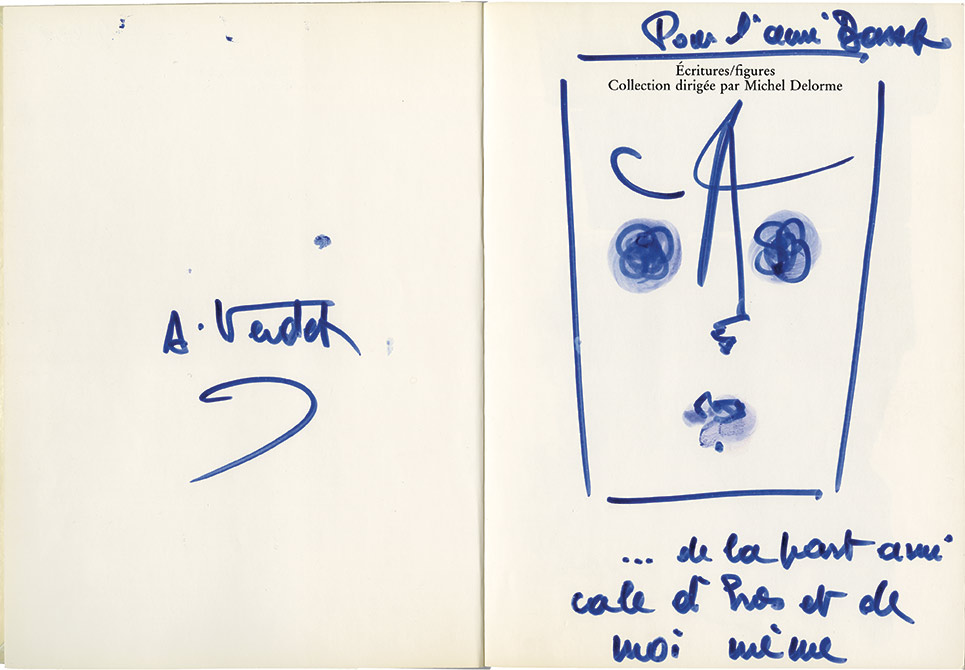 A. Verdet
Pour l'ami
Écritures/figures
Collection dirigée par Michel Delorme
... de la part ami
cale et de
moi même